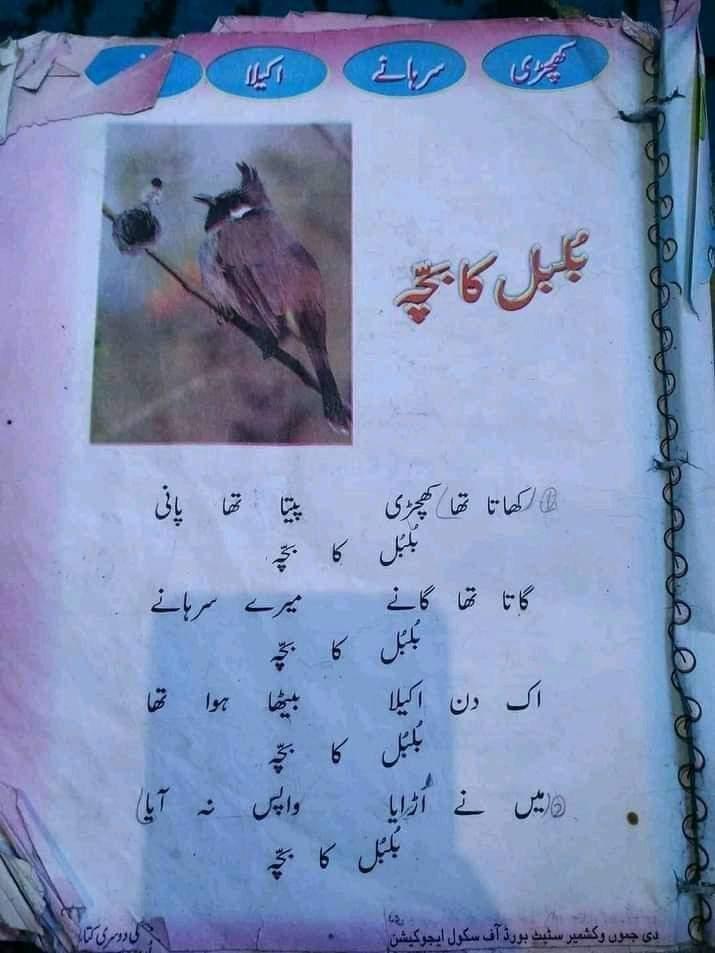 کھچڑی سرہانے اکیلا
بُلبُل کا بچّہ
① (کھاتا تھا) کھچڑی پیتا تھا پانی
بُلبُل کا بچّہ
گاتا تھا گانے میرے سرہانے
بُلبُل کا بچّہ
اک دن اکیلا بیٹھا ہوا تھا
بُلبُل کا بچّہ
② (میں نے اُڑایا واپس نہ آیا)
بُلبُل کا بچّہ
دی جموں وکشمیر سٹیٹ بورڈ آف سکول ایجوکیشن
کی دوسری کتاب